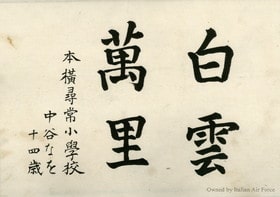 白雲
萬里
本横尋常小學校
中谷なを
十四歳
Owned by Italian Air Force